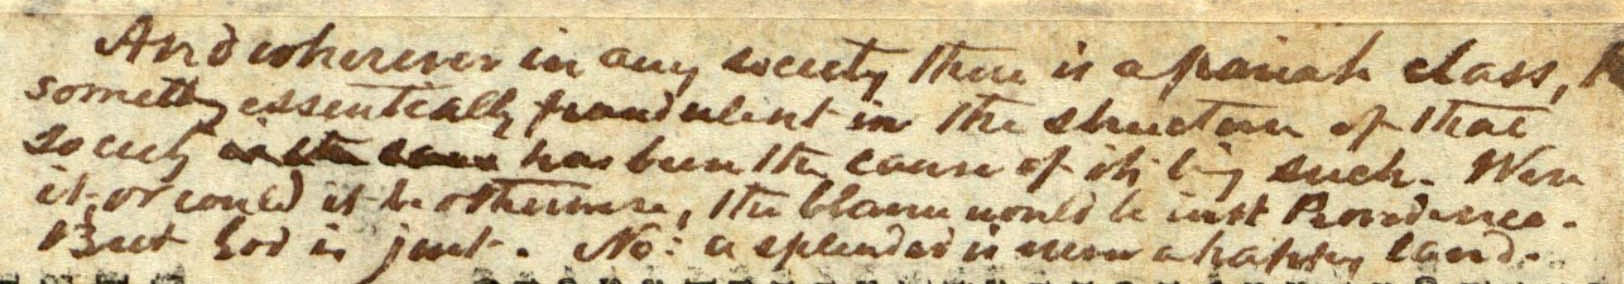 And wherever in any society there is a pariah class,
something essentially fraudulent in the structure of that
society is the cause has been the cause of its being such. Were
it, or could it be otherwise, the blame would be with Providence.
But God is just. No: a splendid is never a happy land.